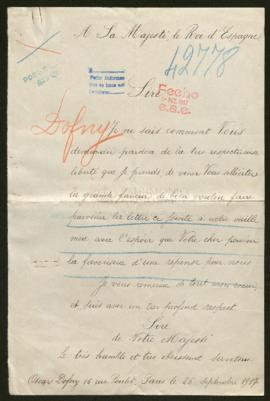 A Sa Majesté le Roi d'Espagne
42778
Sire
Fecho
E.S.E.
Dofny
Je ne sais comment Vous
demander pardon de la très respectueuse
liberté que je prends de venir Vous solliciter
la grande faveur de bien vouloir faire
parvenir la lettre ci jointe à notre vieille
mère avec l'espoir que Votre cher pouvoir
la favorisera d'une réponse pour nous
Je vous remercie de tout mon coeur,
et suis avec un très profond respect
Sire
de Votre Majesté
Le très humble et très obéissant serviteur
Oscar Dofny 16 rue Paris le 26 septembre 1917